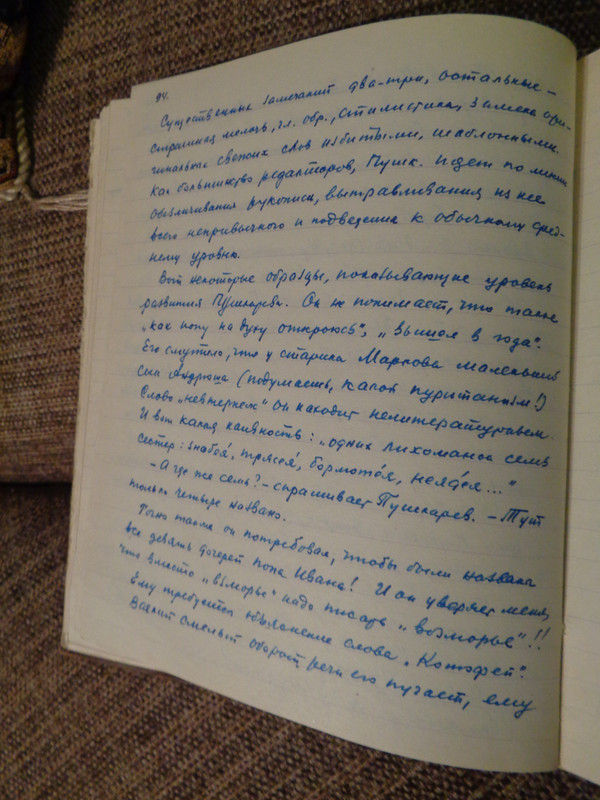 94.
Существенных замечаний два-три, остальные –
страшная мелочь, гл. обр., стилистика, замена ори-
гинальных свежих слов избитыми, шаблонными.
Как большинство редакторов, Пушк. идет по линии
обезличивания рукописи, вытравливания из нее
всего непривычного и подведения к обычному сред-
нему уровню.
Вот некоторые образцы, показывающие уровень
развития Пушкарева. Он не понимает, что такое
„как попу на духу откроюсь“, „вышел в года“.
Его смутило, что у старика Маркова маленький
сын Андрюша (подумаешь, какой пуританизм!)
Слово „невтерпеж“ он находит нелитературным.
И вот какая наивность: „одних лихоманок семь
сестер: знобея, трясея, бормотоя, неядея...“
– А где же семь? – спрашивает Пушкарев. – Тут
только четыре названо.
Точно также он потребовал, чтобы были названы
все девять дочерей попа Ивана! И он уверяет меня,
что вместо „взморье“ надо писать „возморье“!!
Ему требуется объяснение слова „Котофей“.
Всякий смелый оборот речи его пугает, ему